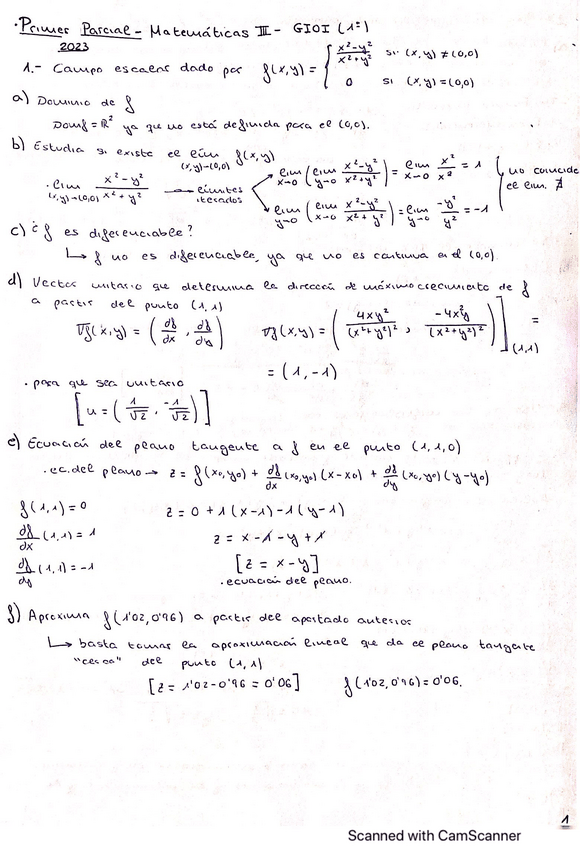 ·Primer Parcial - Matemáticas III - GIOI (1º)
2023
1.- Campo escalar dado por f(x,y) = { (x²-y²)/(x²+y²) si (x,y) ≠ (0,0)
0 si (x,y) = (0,0)
a) Dominio de f
Dom f = ℝ² ya que no está definida para el (0,0).
b) Estudia si existe el lím (x,y)→(0,0) f(x,y)
· lim (x,y)→(0,0) (x²-y²)/(x²+y²) → límites iterados
lim x→0 (lim y→0 (x²-y²)/(x²+y²)) = lim x→0 x²/x² = 1
lim y→0 (lim x→0 (x²-y²)/(x²+y²)) = lim y→0 -y²/y² = -1
no coincide
el lim. ∄
c) ¿f es diferenciable?
↳ f no es diferenciable, ya que no es continua en el (0,0).
d) Vector unitario que determina la dirección de máximo crecimiento de f
a partir del punto (1,1)
∇f(x,y) = (df/dx, df/dy) ∇f(x,y) = (4xy²/(x²+y²)², -4x²y/(x²+y²)²)](1,1) =
= (1,-1)
· para que sea unitario
[u = (1/√2, -1/√2)]
e) Ecuación del plano tangente a f en el punto (1,1,0)
· ec. del plano → z = f(x₀,y₀) + df/dx (x₀,y₀)(x-x₀) + df/dy (x₀,y₀)(y-y₀)
f(1,1) = 0 z = 0 + 1(x-1) - 1(y-1)
df/dx (1,1) = 1 z = x - 1 - y + 1
df/dy (1,1) = -1 [z = x-y]
· ecuación del plano.
f) Aproxima f(1'02, 0'96) a partir del apartado anterior
↳ basta tomar la aproximación lineal que da el plano tangente
"cerca" del punto (1,1)
[z = 1'02 - 0'96 = 0'06] f(1'02, 0'96) = 0'06.
1
Scanned with CamScanner